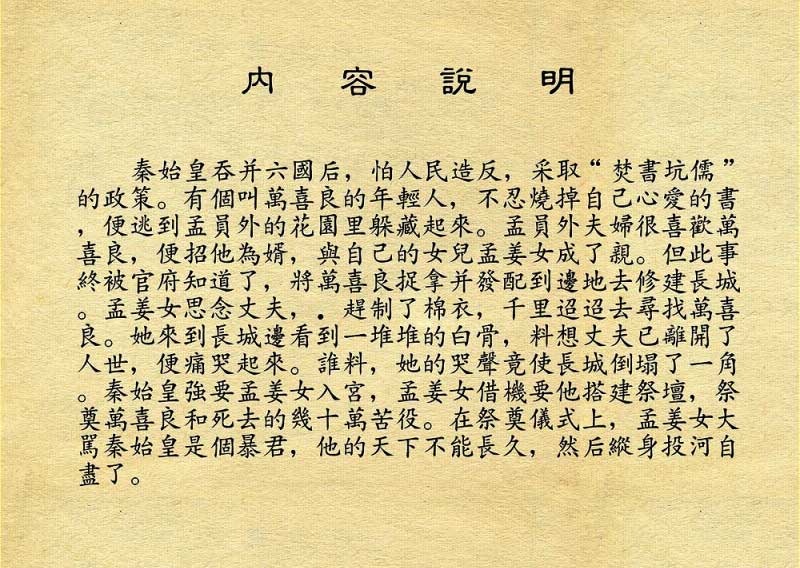 内容說明
秦始皇吞并六國后，怕人民造反，采取“焚書坑儒”
的政策。有個叫萬喜良的年輕人，不忍燒掉自己心愛的書
，便逃到孟員外的花園里躲藏起來。孟員外夫婦很喜歡萬
喜良，便招他為婿，與自己的女兒孟姜女成了親。但此事
終被官府知道了，將萬喜良捉拿并發配到邊地去修建長城
。孟姜女思念丈夫，．趕制了棉衣，千里迢迢去尋找萬喜
良。她來到長城邊看到一堆堆的白骨，料想丈夫已離開了
人世，便痛哭起來。誰料，她的哭聲竟使長城倒塌了一角
。秦始皇強要孟姜女入宮，孟姜女借機要他搭建祭壇，祭
奠萬喜良和死去的幾十萬苦役。在祭奠儀式上，孟姜女大
罵秦始皇是個暴君，他的天下不能長久，然后縱身投河自
盡了。